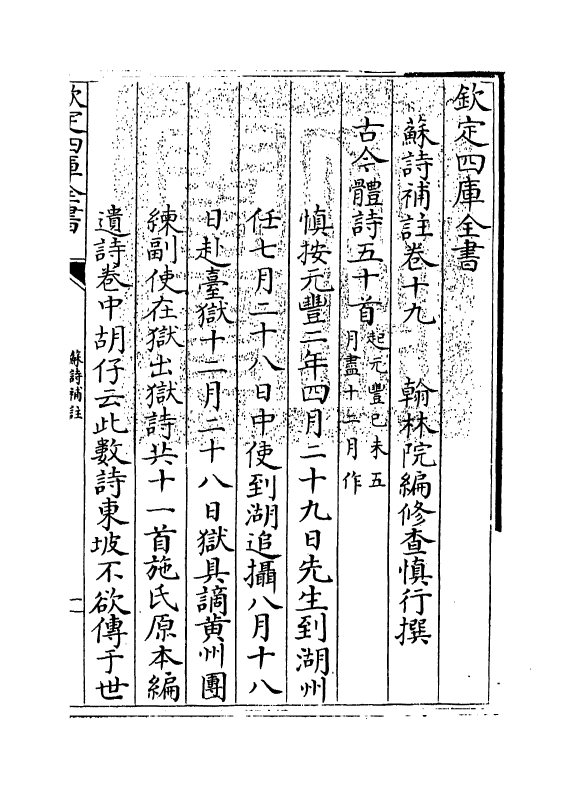 欽定四庫全書
蘇詩補註卷十九　翰林院編修查慎行撰
古今體詩五十首起元豐己未五月盡十二月作
慎按元豐二年四月二十九日先生到湖州
任七月二十八日中使到湖追攝八月十八
日赴臺獄十二月二十八日獄具謫黃州團
練副使在獄出獄詩共十一首施氏原本編
遺詩卷中胡仔云此數詩東坡不欲傳于世
欽定四庫全書
蘇詩補註